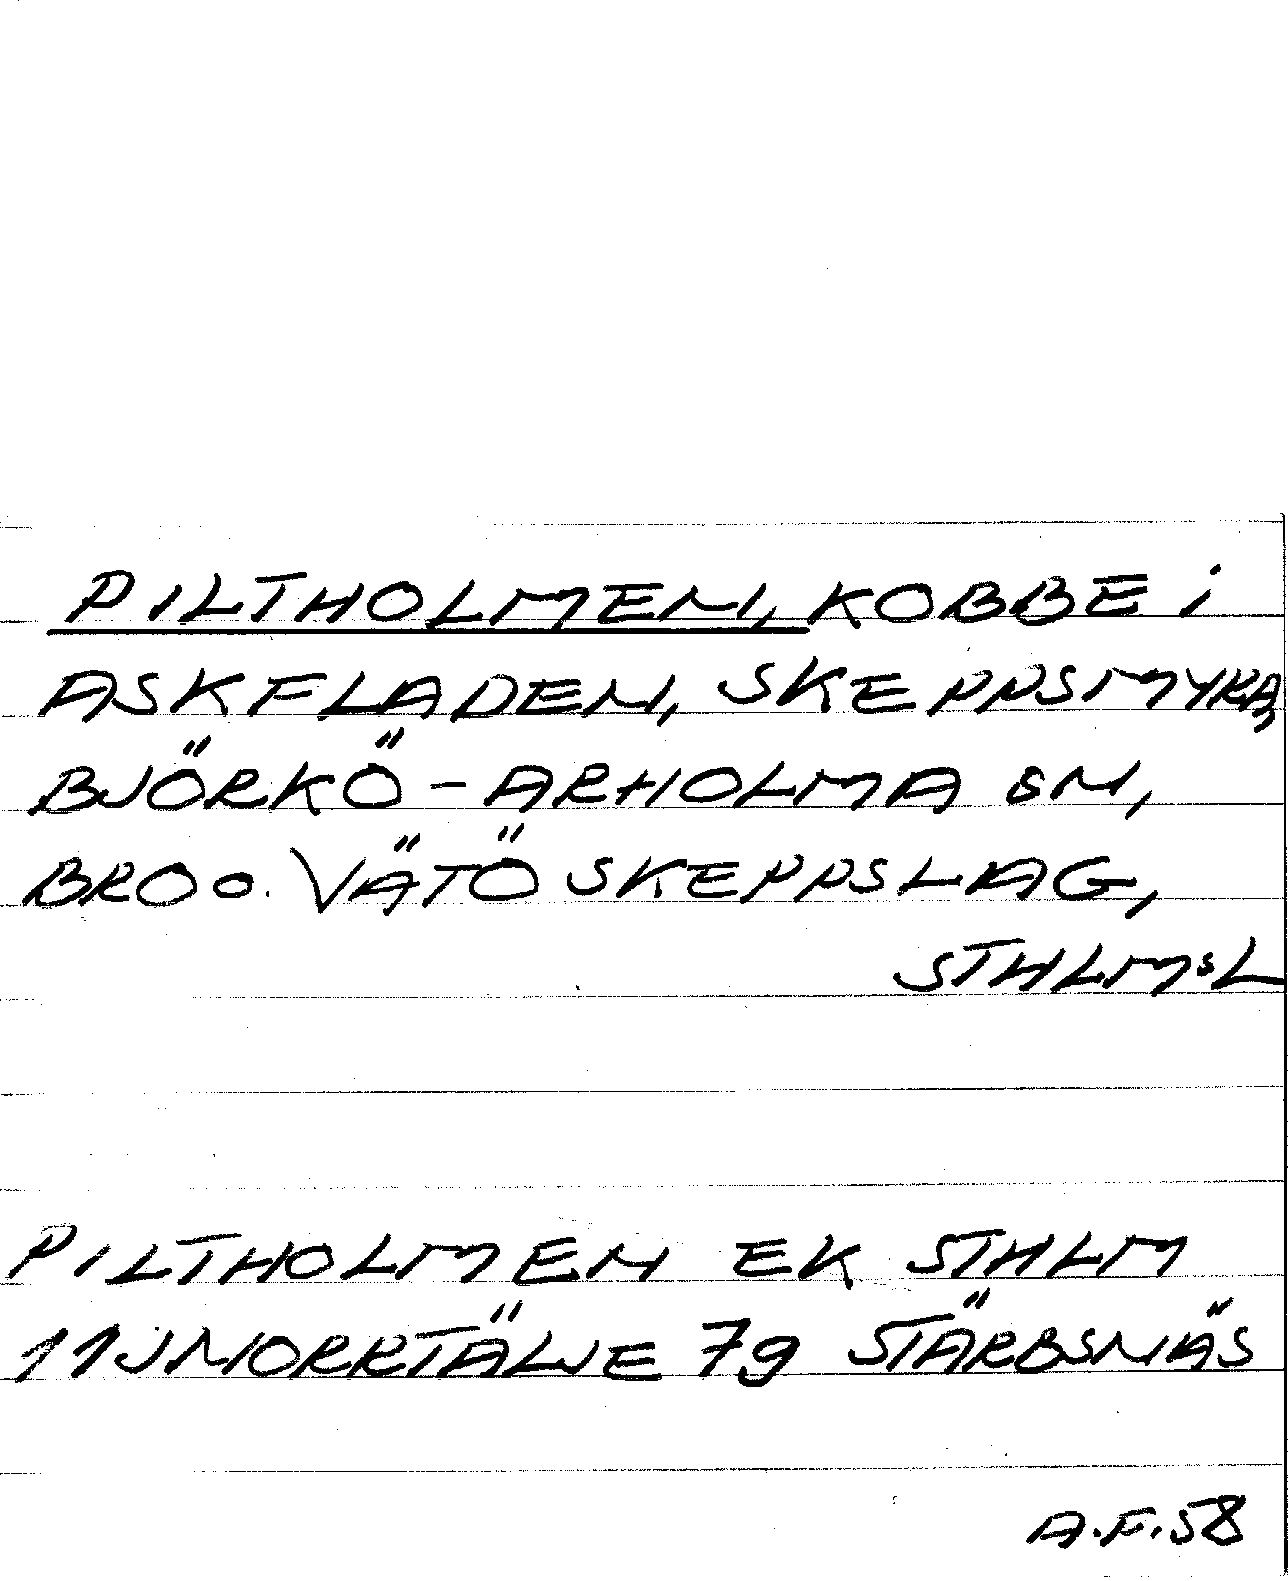 PILTHOLMEN, KOBBE i
ASKFLADEN, SKEPPSMYRA,
BJÖRKÖ - ARHOLMA SN,
BRO o. VÄTÖ SKEPPSLAG,
STHLMSL
PILTHOLMEN EK STHLM
11J NORRTÄLJE 79 STÄRBSNÄS
A.F. 58